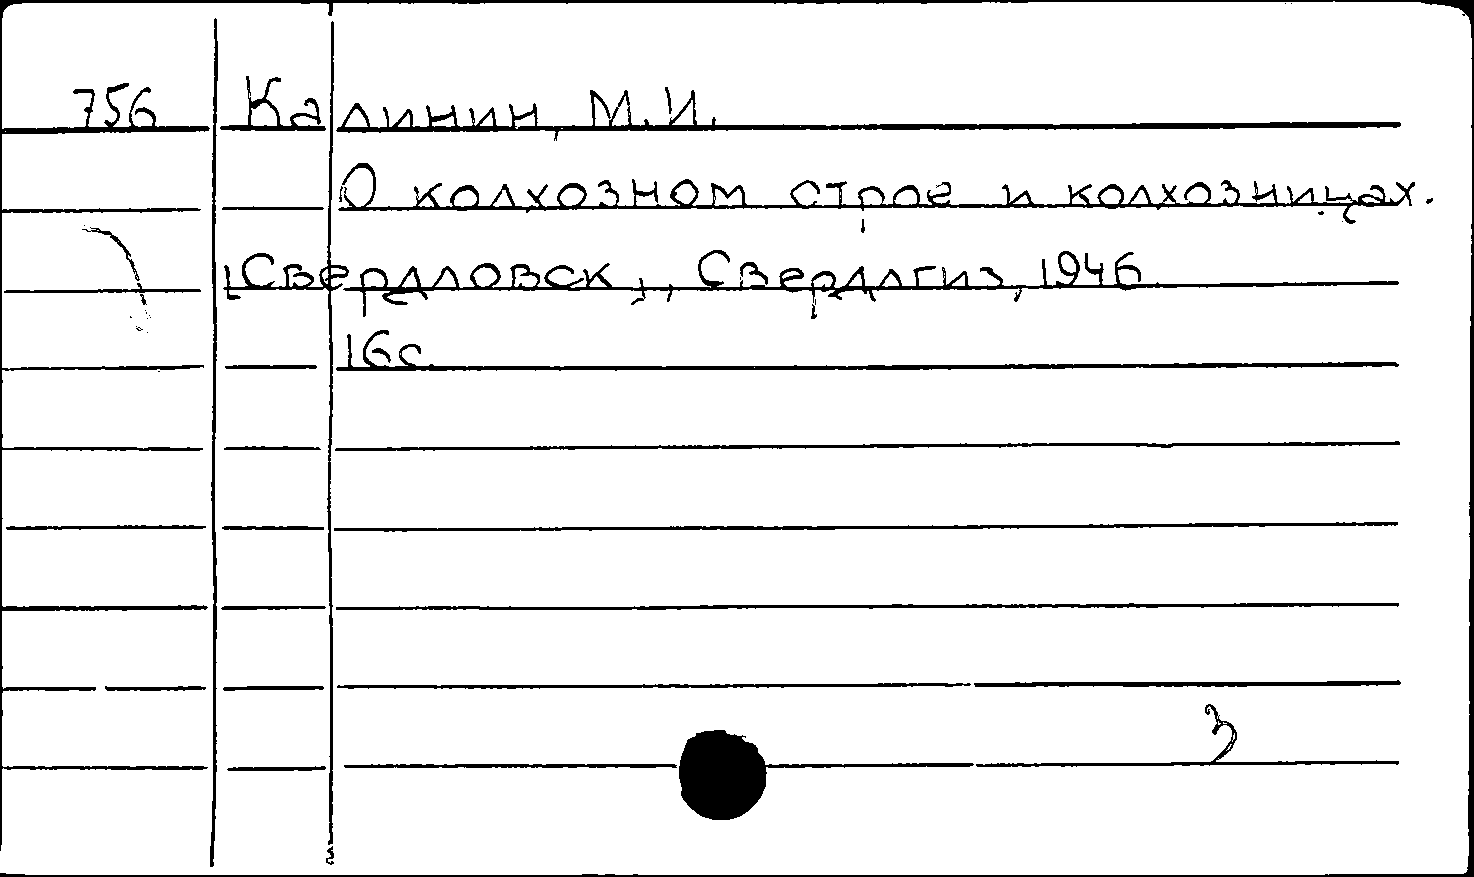 756 Калинин, М.И.
О колхозном строе и колхозницах.
[Свердловск], Свердлгиз, 1946.
16с.
3